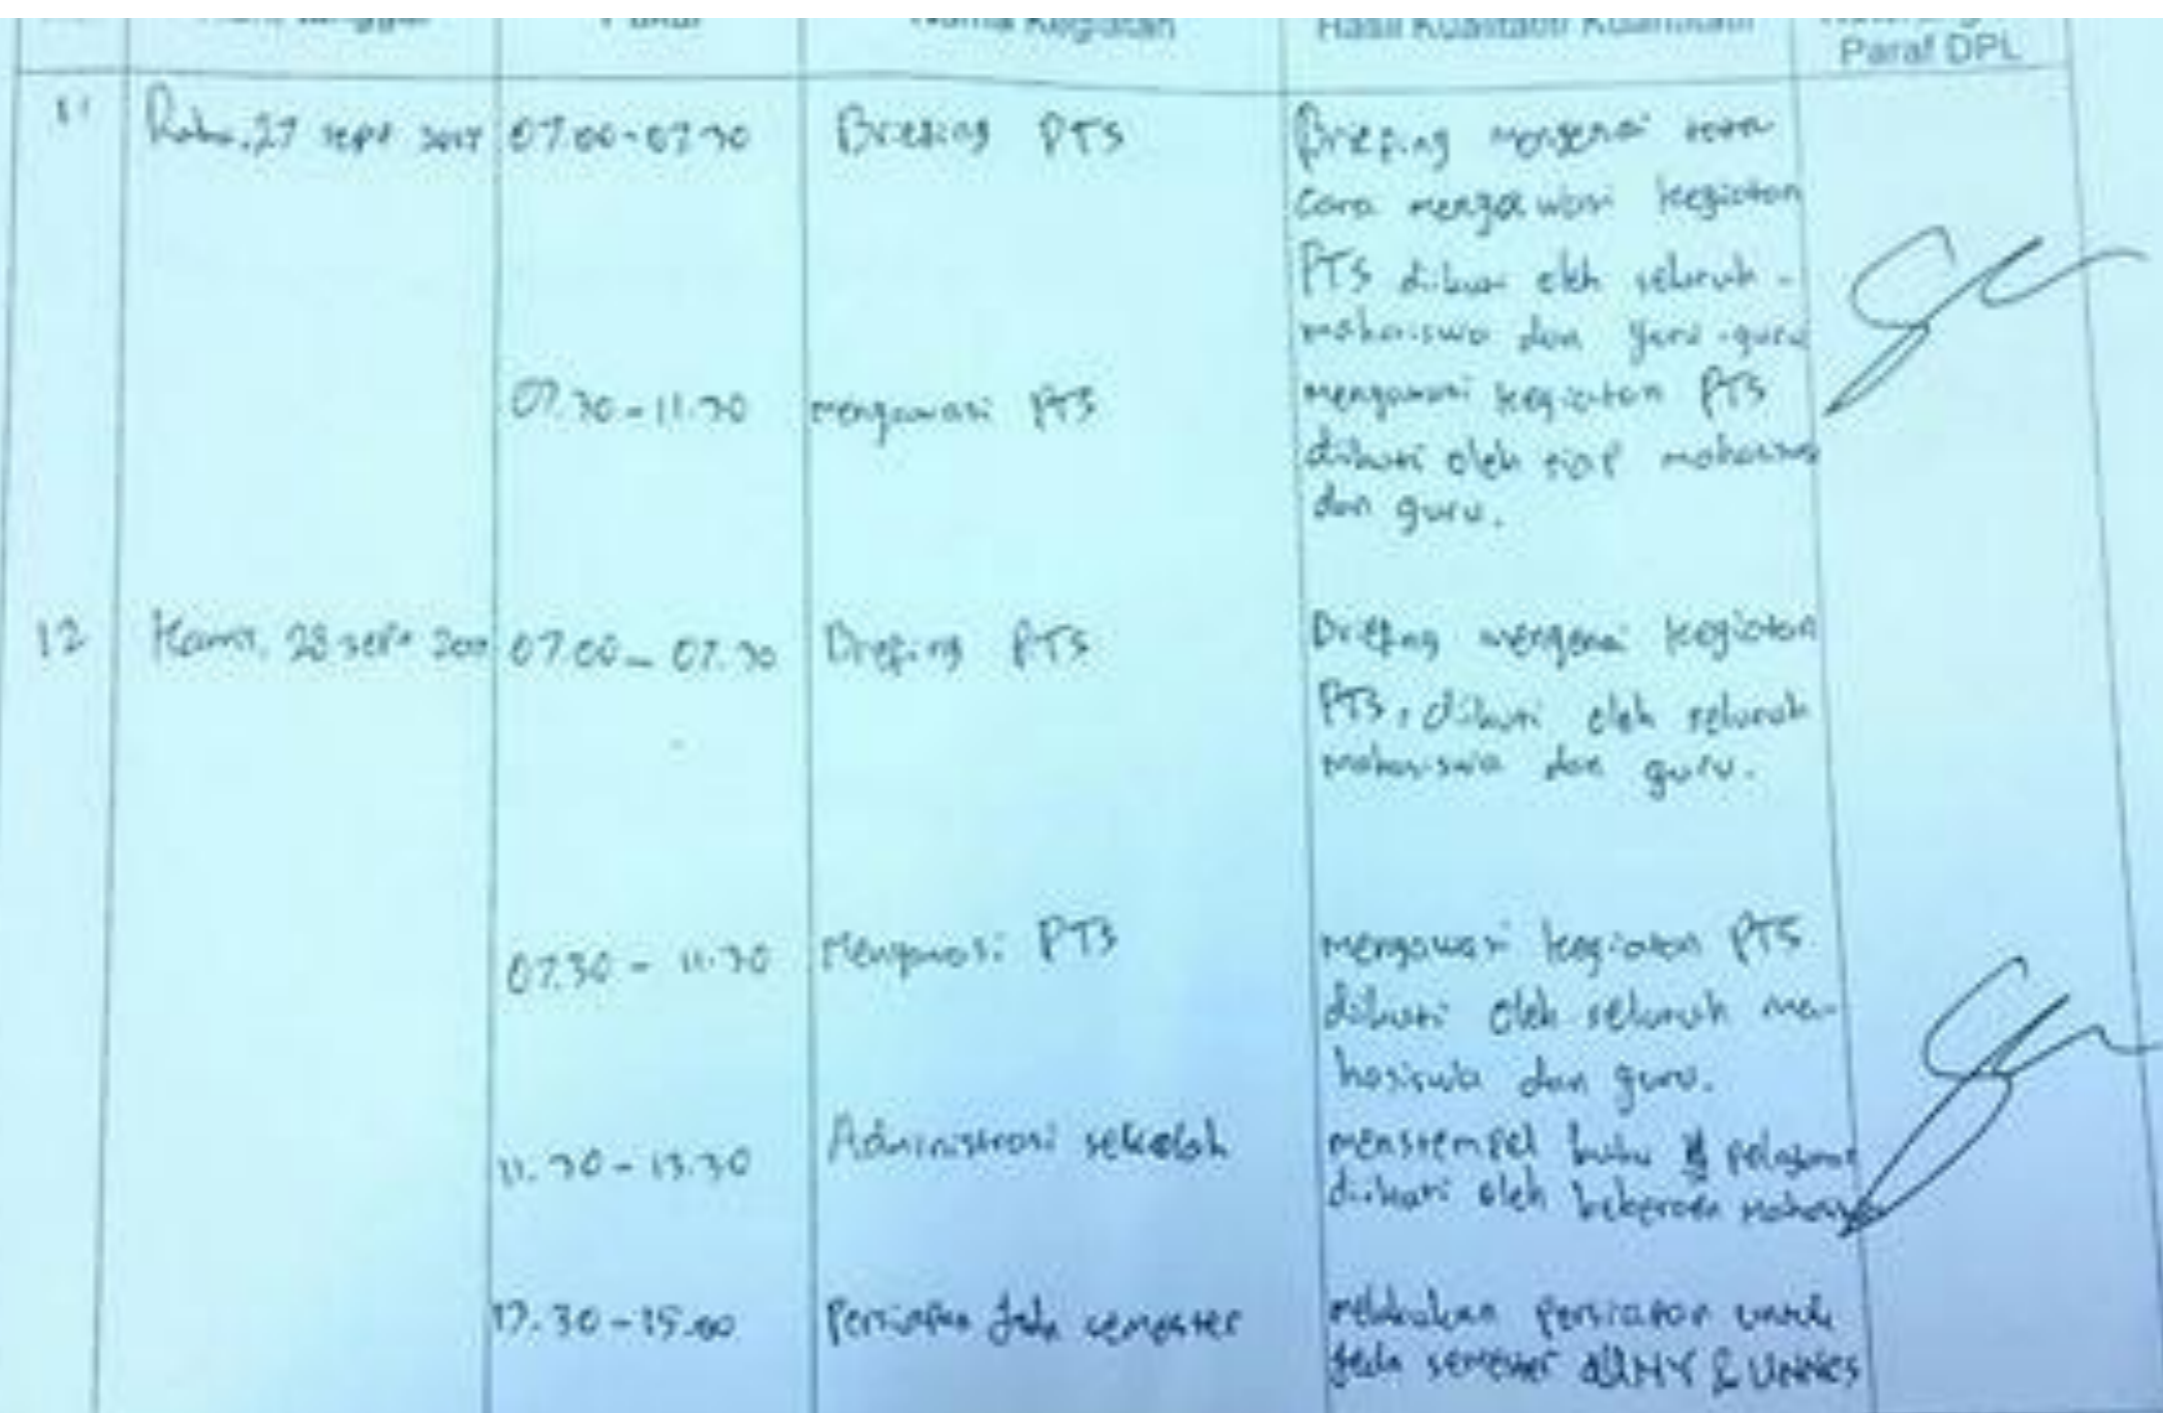 Nama Kegiatan
Hasil Kualitatif/ Kuantitatif
Paraf DPL
11 Rabu, 27 sept 2017 07.00-07.30 Briefing PTS Briefing mengenai tata
cara mengawasi kegiatan
PTS diikuti oleh seluruh -
mahasiswa dan guru-guru
07.30-11.30 mengawasi PTS mengawasi kegiatan PTS
diikuti oleh tiap mahasiswa
dan guru.
12 Kamis, 28 sept 2017 07.00-07.30 Briefing PTS Briefing mengenai kegiatan
PTS, diikuti oleh seluruh
mahasiswa dan guru.
07.30 - 11.30 Mengawasi PTS mengawasi kegiatan PTS
diikuti oleh seluruh ma-
hasiswa dan guru.
11.30-13.30 Administrasi sekolah menstempel buku pelajaran
diikuti oleh beberapa mahasiswa
13.30-15.00 Persiapan jeda semester melakukan persiapan untuk
jeda semester UNY & UNNES